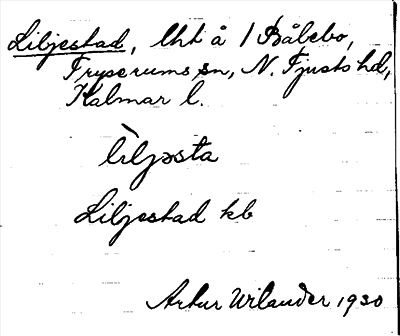 Liljestad, lht å 1 Bålebo,
Fryserums sn, N. Tjusts hd,
Kalmar l.
lìljosta
Liljestad kb
Artur Wilander 1930